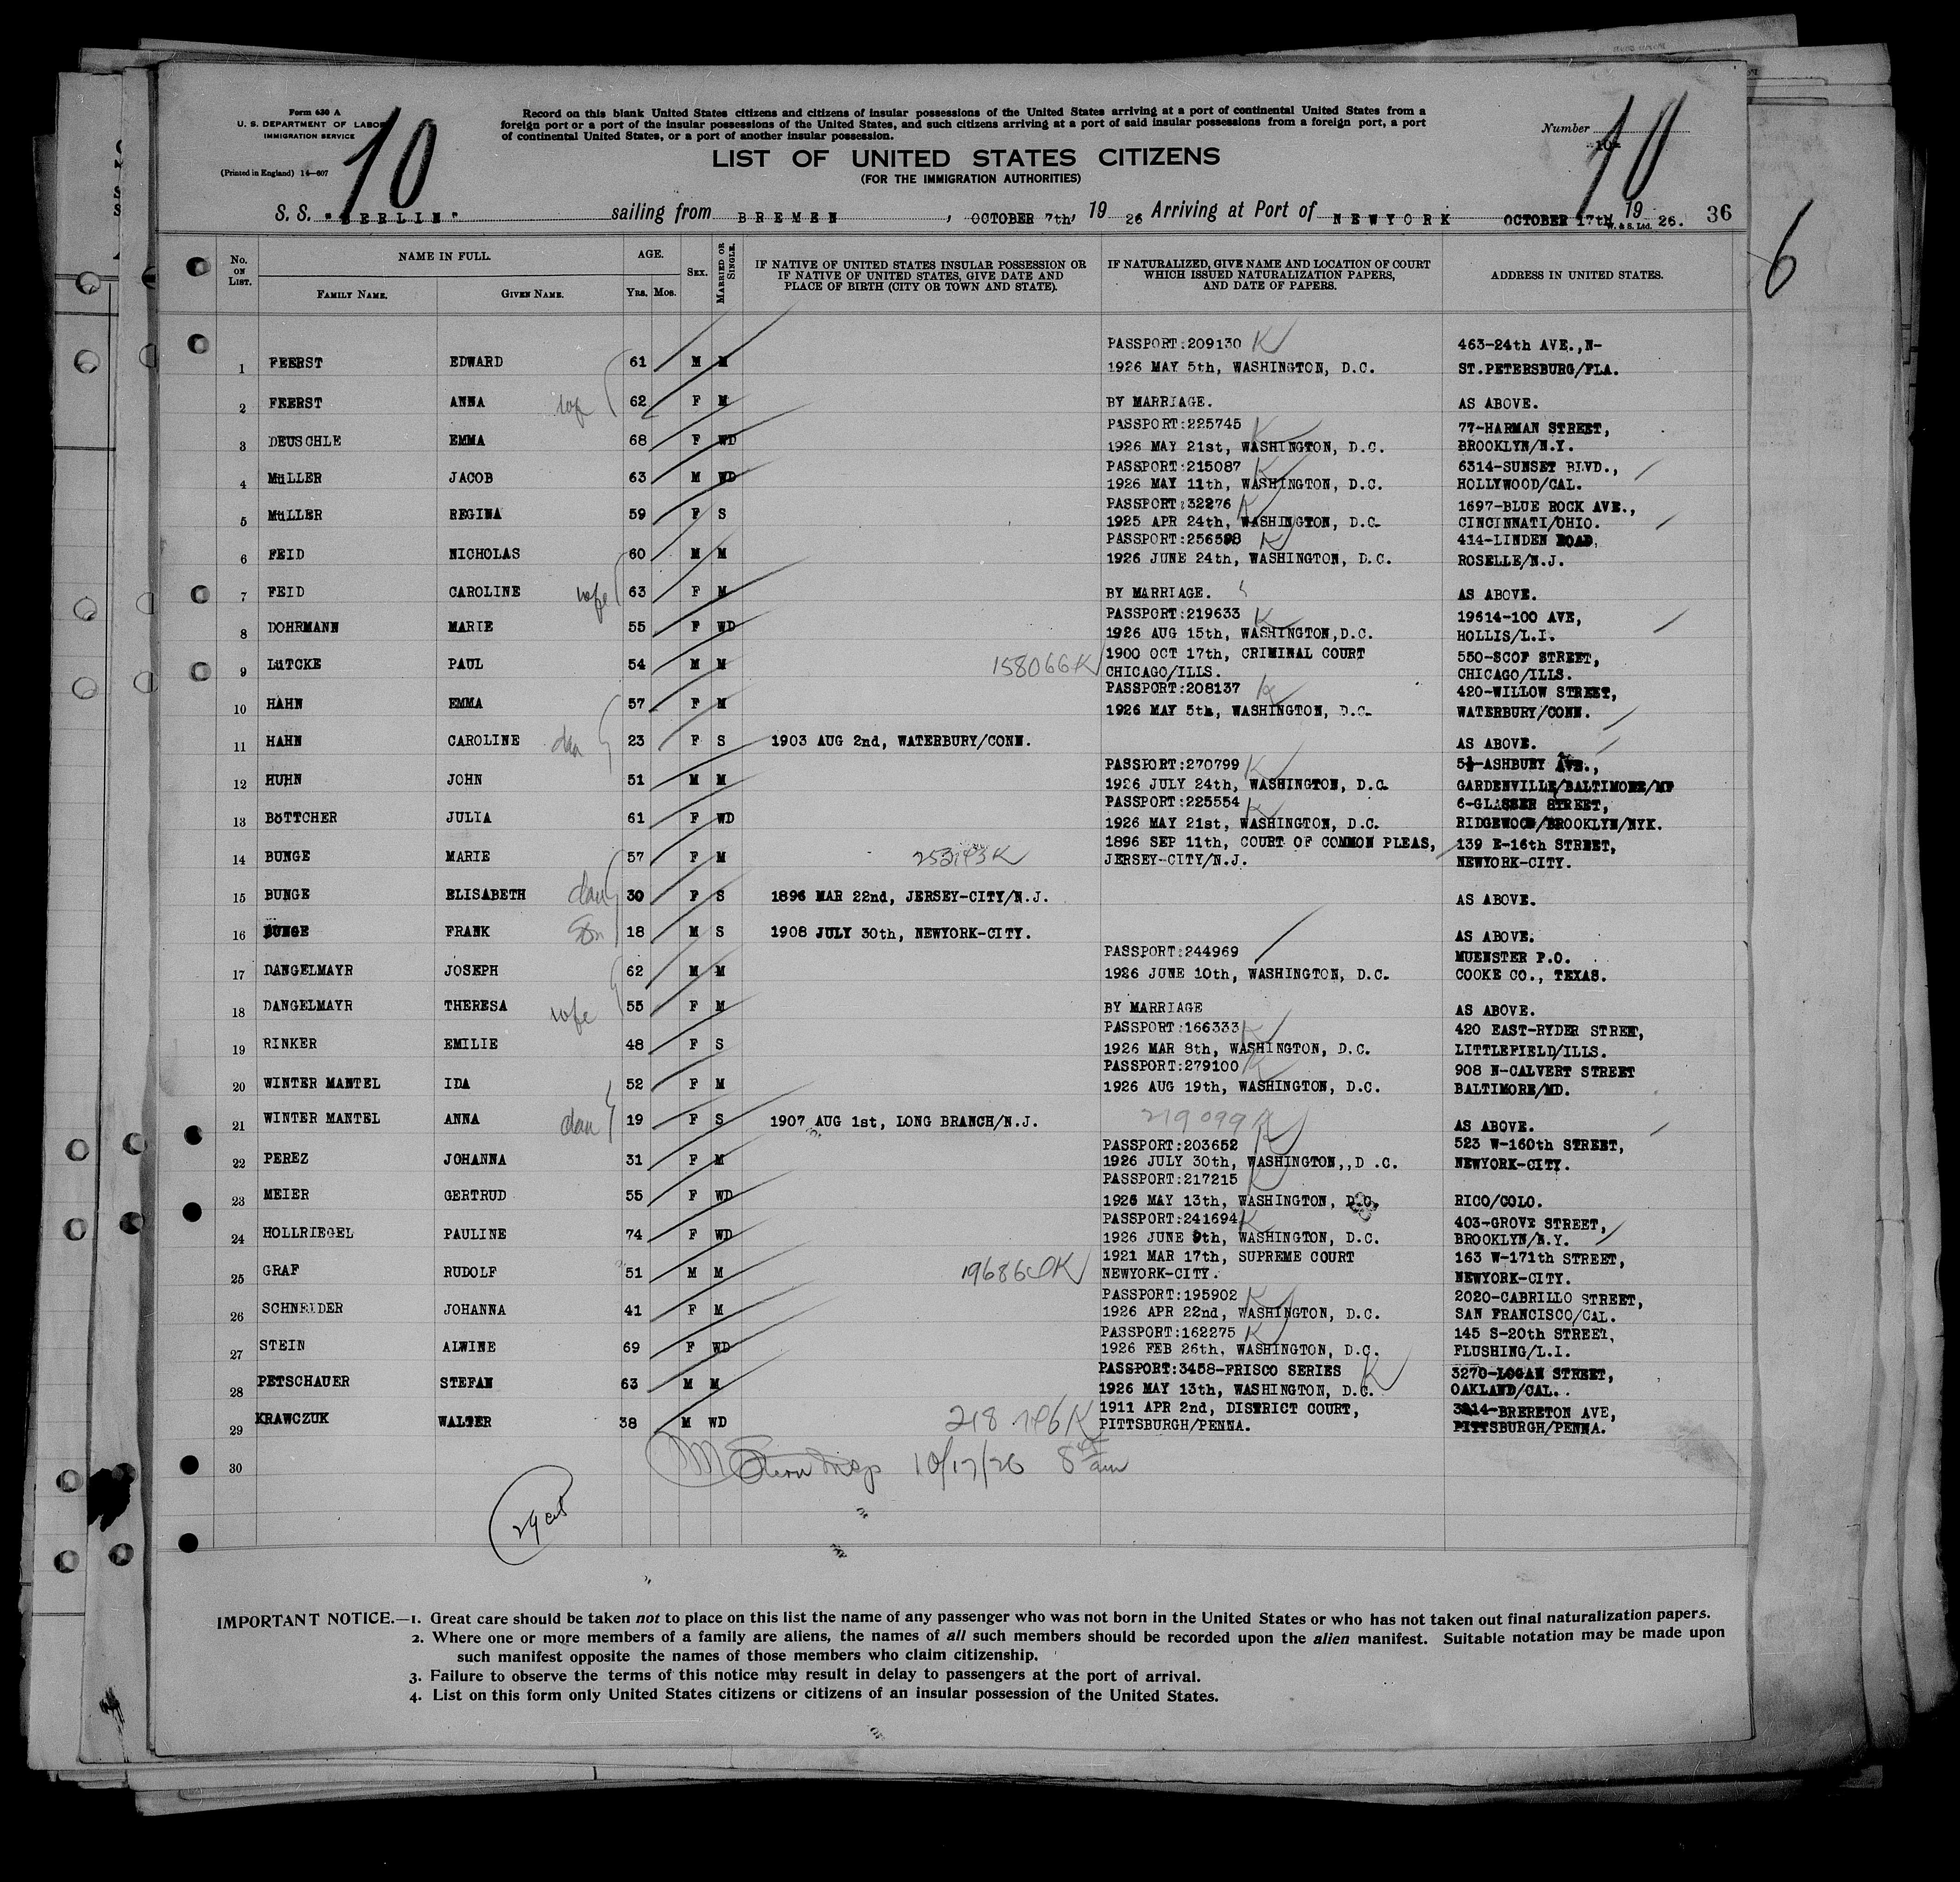 Form 630 A
U. S. DEPARTMENT OF LABOR
IMMIGRATION SERVICE
(Printed in England) 14—607
10
Record on this blank United States citizens and citizens of insular possessions of the United States arriving at a port of continental United States from a
foreign port or a port of the insular possessions of the United States, and such citizens arriving at a port of said insular possessions from a foreign port, a port
of continental United States, or a port of another insular possession.
Number
10
LIST OF UNITED STATES CITIZENS
(FOR THE IMMIGRATION AUTHORITIES)
S. S. "BERLIN" sailing from BREMEN, OCTOBER 7th, 19 26 Arriving at Port of NEWYORK OCTOBER 17th, 19 26. 36
W. & S. Ltd.
6
No. ON LIST. NAME IN FULL. FAMILY NAME. GIVEN NAME. AGE. YRS. MOS. SEX. MARRIED OR SINGLE. IF NATIVE OF UNITED STATES INSULAR POSSESSION OR IF NATIVE OF UNITED STATES, GIVE DATE AND PLACE OF BIRTH (CITY OR TOWN AND STATE). IF NATURALIZED, GIVE NAME AND LOCATION OF COURT WHICH ISSUED NATURALIZATION PAPERS, AND DATE OF PAPERS. ADDRESS IN UNITED STATES.
PASSPORT:209130 K 463-24th AVE.,N-
1 FEERST EDWARD 61 M M 1926 MAY 5th, WASHINGTON, D.C. ST.PETERSBURG/FLA.
2 FEERST ANNA wife 62 F M BY MARRIAGE. AS ABOVE.
PASSPORT:225745 K 77-HARMAN STREET,
3 DEUSCHLE EMMA 68 F WD 1926 MAY 21st, WASHINGTON, D.C. BROOKLYN/N.Y.
PASSPORT:215087 K 6314-SUNSET BLVD.,
4 MüLLER JACOB 63 M WD 1926 MAY 11th, WASHINGTON, D.C. HOLLYWOOD/CAL.
PASSPORT:32276 K 1697-BLUE ROCK AVE.,
5 MüLLER REGINA 59 F S 1925 APR 24th, WASHINGTON, D.C. CINCINNATI/OHIO.
PASSPORT:256598 K 414-LINDEN ROAD,
6 FEID NICHOLAS 60 M M 1926 JUNE 24th, WASHINGTON, D.C. ROSELLE/N.J.
7 FEID CAROLINE wife 63 F M BY MARRIAGE. AS ABOVE.
PASSPORT:219633 K 19614-100 AVE,
8 DOHRMANN MARIE 55 F WD 1926 AUG 15th, WASHINGTON,D.C. HOLLIS/L.I.
1900 OCT 17th, CRIMINAL COURT 550-SCOF STREET,
9 LüTCKE PAUL 54 M M 158066 K CHICAGO/ILLS. CHICAGO/ILLS.
PASSPORT:208137 K 420-WILLOW STREET,
10 HAHN EMMA 57 F M 1926 MAY 5th, WASHINGTON, D.C. WATERBURY/CONN.
11 HAHN CAROLINE dau 23 F S 1903 AUG 2nd, WATERBURY/CONN. AS ABOVE.
PASSPORT:270799 K ASHBURY AVE.,
12 HUHN JOHN 51 M M 1926 JULY 24th, WASHINGTON, D.C. GARDENVILLE/BALTIMORE/MD
PASSPORT:225554 K 6-GLASSER STREET,
13 BöTTCHER JULIA 61 F WD 1926 MAY 21st, WASHINGTON, D.C. RIDGEWOOD/BROOKLYN/NYK.
1896 SEP 11th, COURT OF COMMON PLEAS, 139 E-16th STREET,
14 BUNGE MARIE 57 F M JERSEY-CITY/N.J. NEWYORK-CITY.
15 BUNGE ELISABETH dau 30 F S 1896 MAR 22nd, JERSEY-CITY/N.J. AS ABOVE.
16 BUNGE FRANK Son 18 M S 1908 JULY 30th, NEWYORK-CITY. AS ABOVE.
PASSPORT:244969 MUENSTER P.O.
17 DANGELMAYR JOSEPH 62 M M 1926 JUNE 10th, WASHINGTON, D.C. COOKE CO., TEXAS.
18 DANGELMAYR THERESA wife 55 F M BY MARRIAGE AS ABOVE.
PASSPORT:166333 K 420 EAST-RYDER STREET,
19 RINKER EMILIE 48 F S 1926 MAR 8th, WASHINGTON, D.C. LITTLEFIELD/ILLS.
PASSPORT:279100 K 908 N-CALVERT STREET
20 WINTER MANTEL IDA 52 F M 1926 AUG 19th, WASHINGTON, D.C. BALTIMORE/MD.
21 WINTER MANTEL ANNA dau 19 F S 1907 AUG 1st, LONG BRANCH/N.J. 219099 K AS ABOVE.
PASSPORT:203652 K 523 W-160th STREET,
22 PEREZ JOHANNA 31 F M 1926 JULY 30th, WASHINGTON,,D .C. NEWYORK-CITY.
PASSPORT:217215 K
23 MEIER GERTRUD 55 F WD 1926 MAY 13th, WASHINGTON, D.C. RICO/COLO.
PASSPORT:241694 K 403-GROVE STREET,
24 HOLLRIEGEL PAULINE 74 F WD 1926 JUNE 9th, WASHINGTON, D.C. BROOKLYN/N.Y.
1921 MAR 17th, SUPREME COURT 163 W-171th STREET,
25 GRAF RUDOLF 51 M M NEWYORK-CITY. NEWYORK-CITY.
PASSPORT:195902 K 2020-CABRILLO STREET,
26 SCHNEIDER JOHANNA 41 F M 1926 APR 22nd, WASHINGTON, D.C. SAN FRANCISCO/CAL.
PASSPORT:162275 K 145 S-20th STREET,
27 STEIN ALWINE 69 F WD 1926 FEB 26th, WASHINGTON, D.C. FLUSHING/L.I.
PASSPORT:3458-FRISCO SERIES K 3270-LOGAN STREET,
28 PETSCHAUER STEFAN 63 M M 1926 MAY 13th, WASHINGTON, D.C. OAKLAND/CAL..
1911 APR 2nd, DISTRICT COURT, BRERETON AVE,
29 KRAWCZUK WALTER 38 M WD PITTSBURGH/PENNA. PITTSBURGH/PENNA.
30 10/17/26 8 am
29 cit
IMPORTANT NOTICE.—1. Great care should be taken not to place on this list the name of any passenger who was not born in the United States or who has not taken out final naturalization papers.
2. Where one or more members of a family are aliens, the names of all such members should be recorded upon the alien manifest. Suitable notation may be made upon
such manifest opposite the names of those members who claim citizenship.
3. Failure to observe the terms of this notice may result in delay to passengers at the port of arrival.
4. List on this form only United States citizens or citizens of an insular possession of the United States.